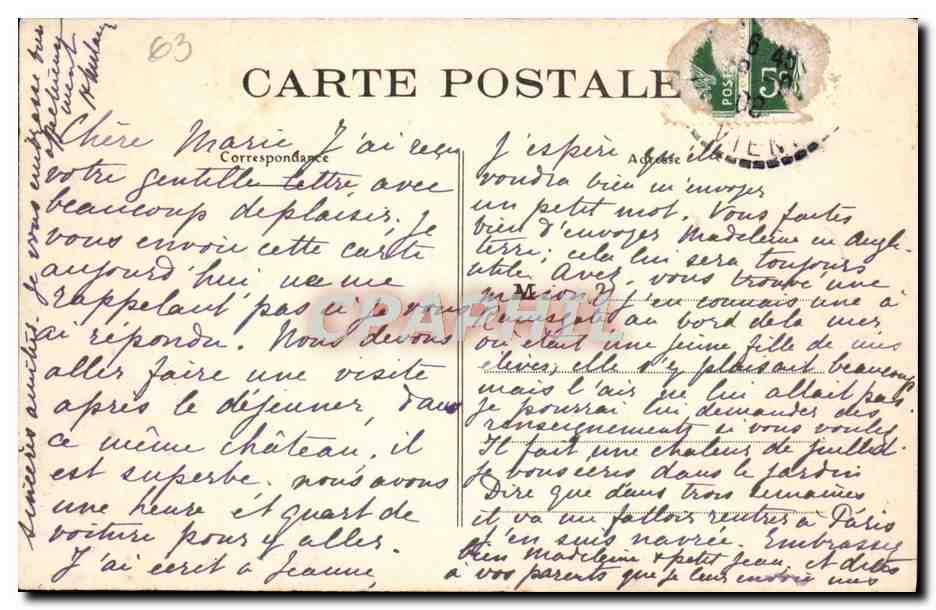 63
CARTE POSTALE
Correspondance
Adresse
POSTES
5
6 45
08
VIEN
Chère Marie J'ai reçu
votre gentille lettre, avec
beaucoup de plaisir. Je
vous envoie cette carte
aujourd'hui ne me
rappelant pas si je vous
ai répondu. Nous devons
aller faire une visite
après le déjeuner, dans
ce même château, il
est superbe. nous avons
une heure et quart de
voiture pour y aller.
J'ai écrit à Jeanne,
J'espère qu'elle
voudra bien m'envoyer
un petit mot. Vous faites
bien d'envoyer Madeleine en Angle-
terre; cela lui sera toujours
utile. Avez vous trouvé une
maison? j'en connais une à
Ramsgate au bord de la mer
où était une jeune fille de mes
élèves, elle s'y plaisait beaucoup
mais l'air ne lui allait pas.
Je pourrai lui demander des
renseignements si vous voulez
Il fait une chaleur de juillet
je vous écris dans le jardin
Dire que dans trois semaines
il va me falloir rentrer à Paris
j'en suis navrée. Embrassez
bien Madeleine & petit Jean, et dites
à vos parents que je leur envoie mes
sincères amitiés. Je vous embrasse
M
CPAPHIL